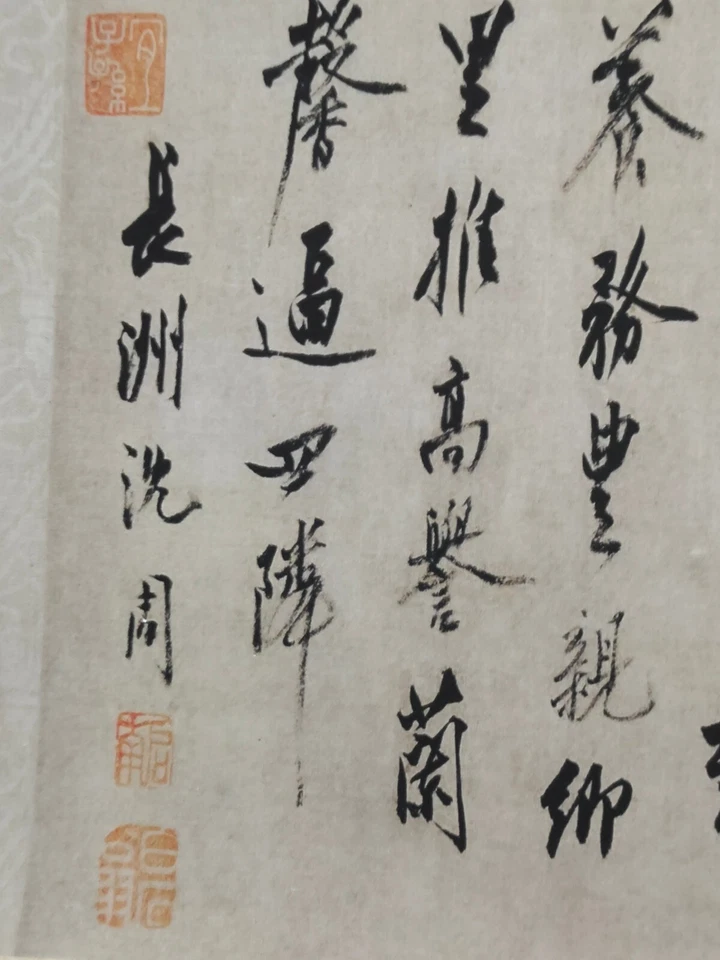 養務豊親鄉
里推高譽蘭
馨逼四隣
長洲沈周
啓南